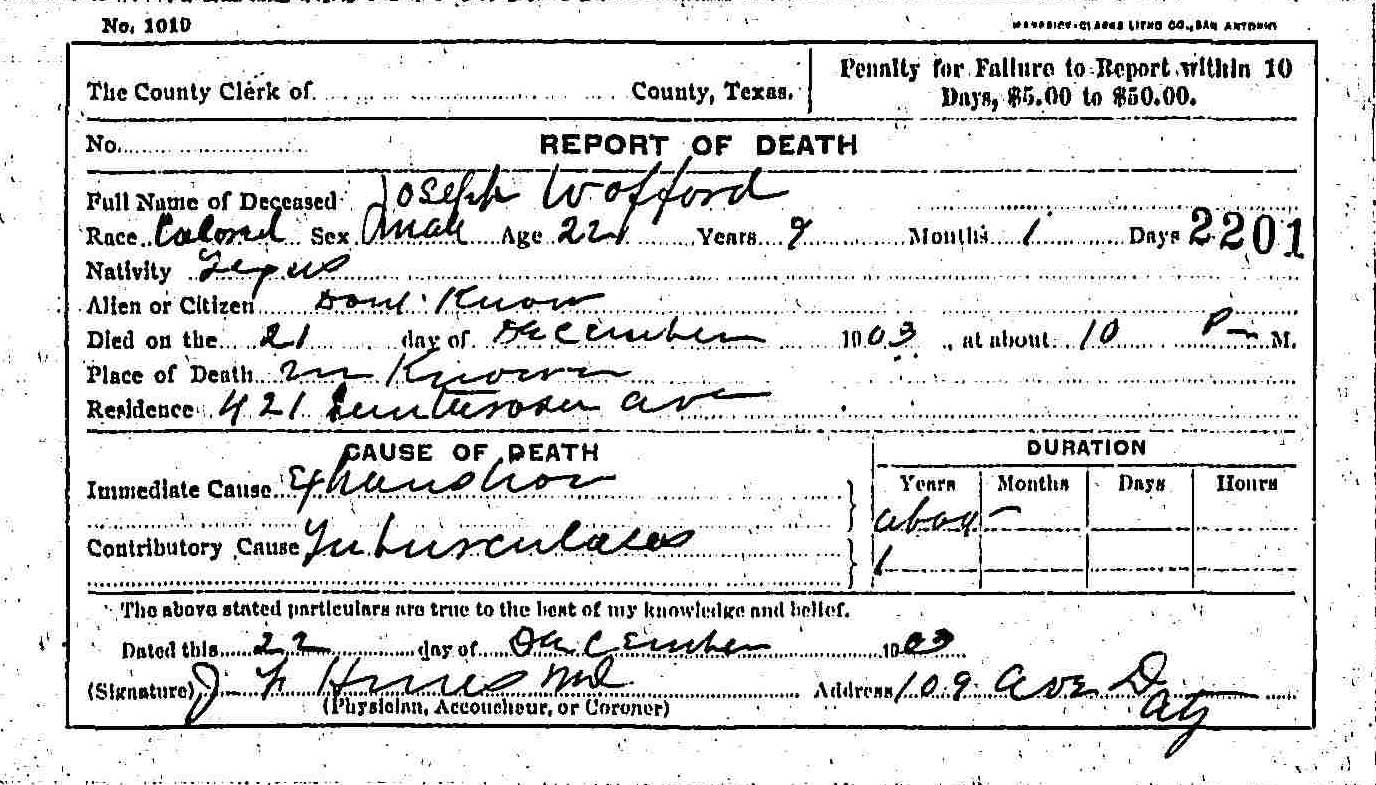 No. 1010 MAVERICK-CLARKE LITHO CO., SAN ANTONIO
The County Clerk of County, Texas.
Penalty for Failure to Report within 10
Days, $5.00 to $50.00.
No. REPORT OF DEATH
Full Name of Deceased Joseph Wofford
Race Colored Sex Male Age 22 Years 9 Months 1 Days 2201
Nativity Texas
Alien or Citizen Dont Know
Died on the 21 day of December 1903, at about 10 P M.
Place of Death un Known
Residence 421 ave
CAUSE OF DEATH DURATION
Years Months Days Hours
Immediate Cause Exhaustion
about
Contributory Cause Tuberculosis
1
The above stated particulars are true to the best of my knowledge and belief.
Dated this 22 day of December 1903
(Signature) J Md Address 109 ave D
(Physician, Accoucheur, or Coroner)